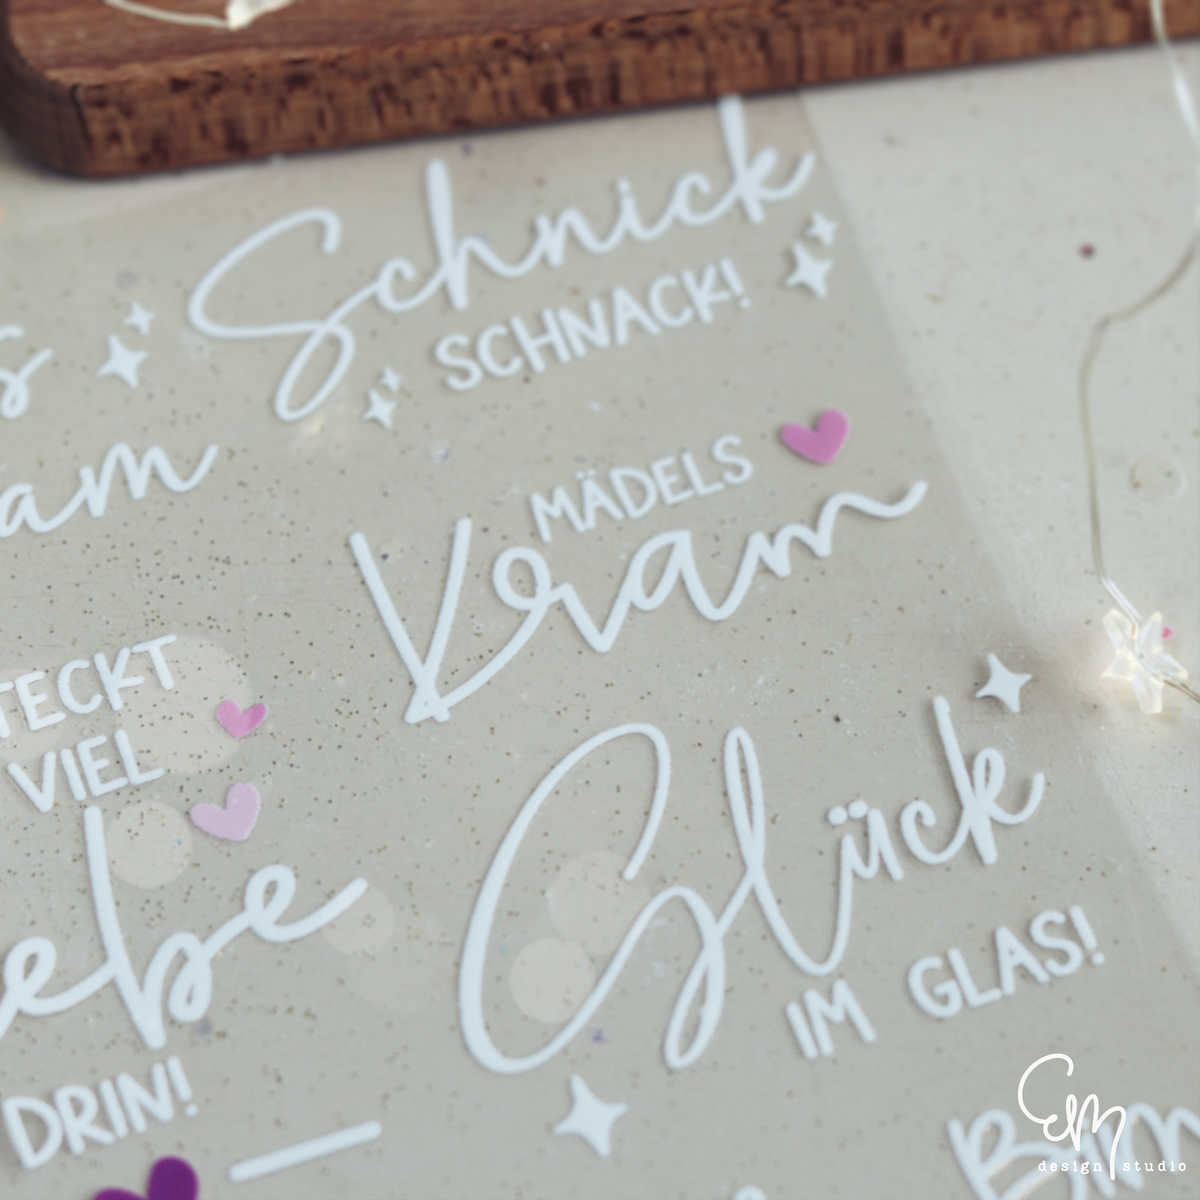 Schnick
SCHNACK!
MÄDELS
Kram
TECKT
VIEL
ebe
DRIN!
Glück
IM GLAS!
design studio